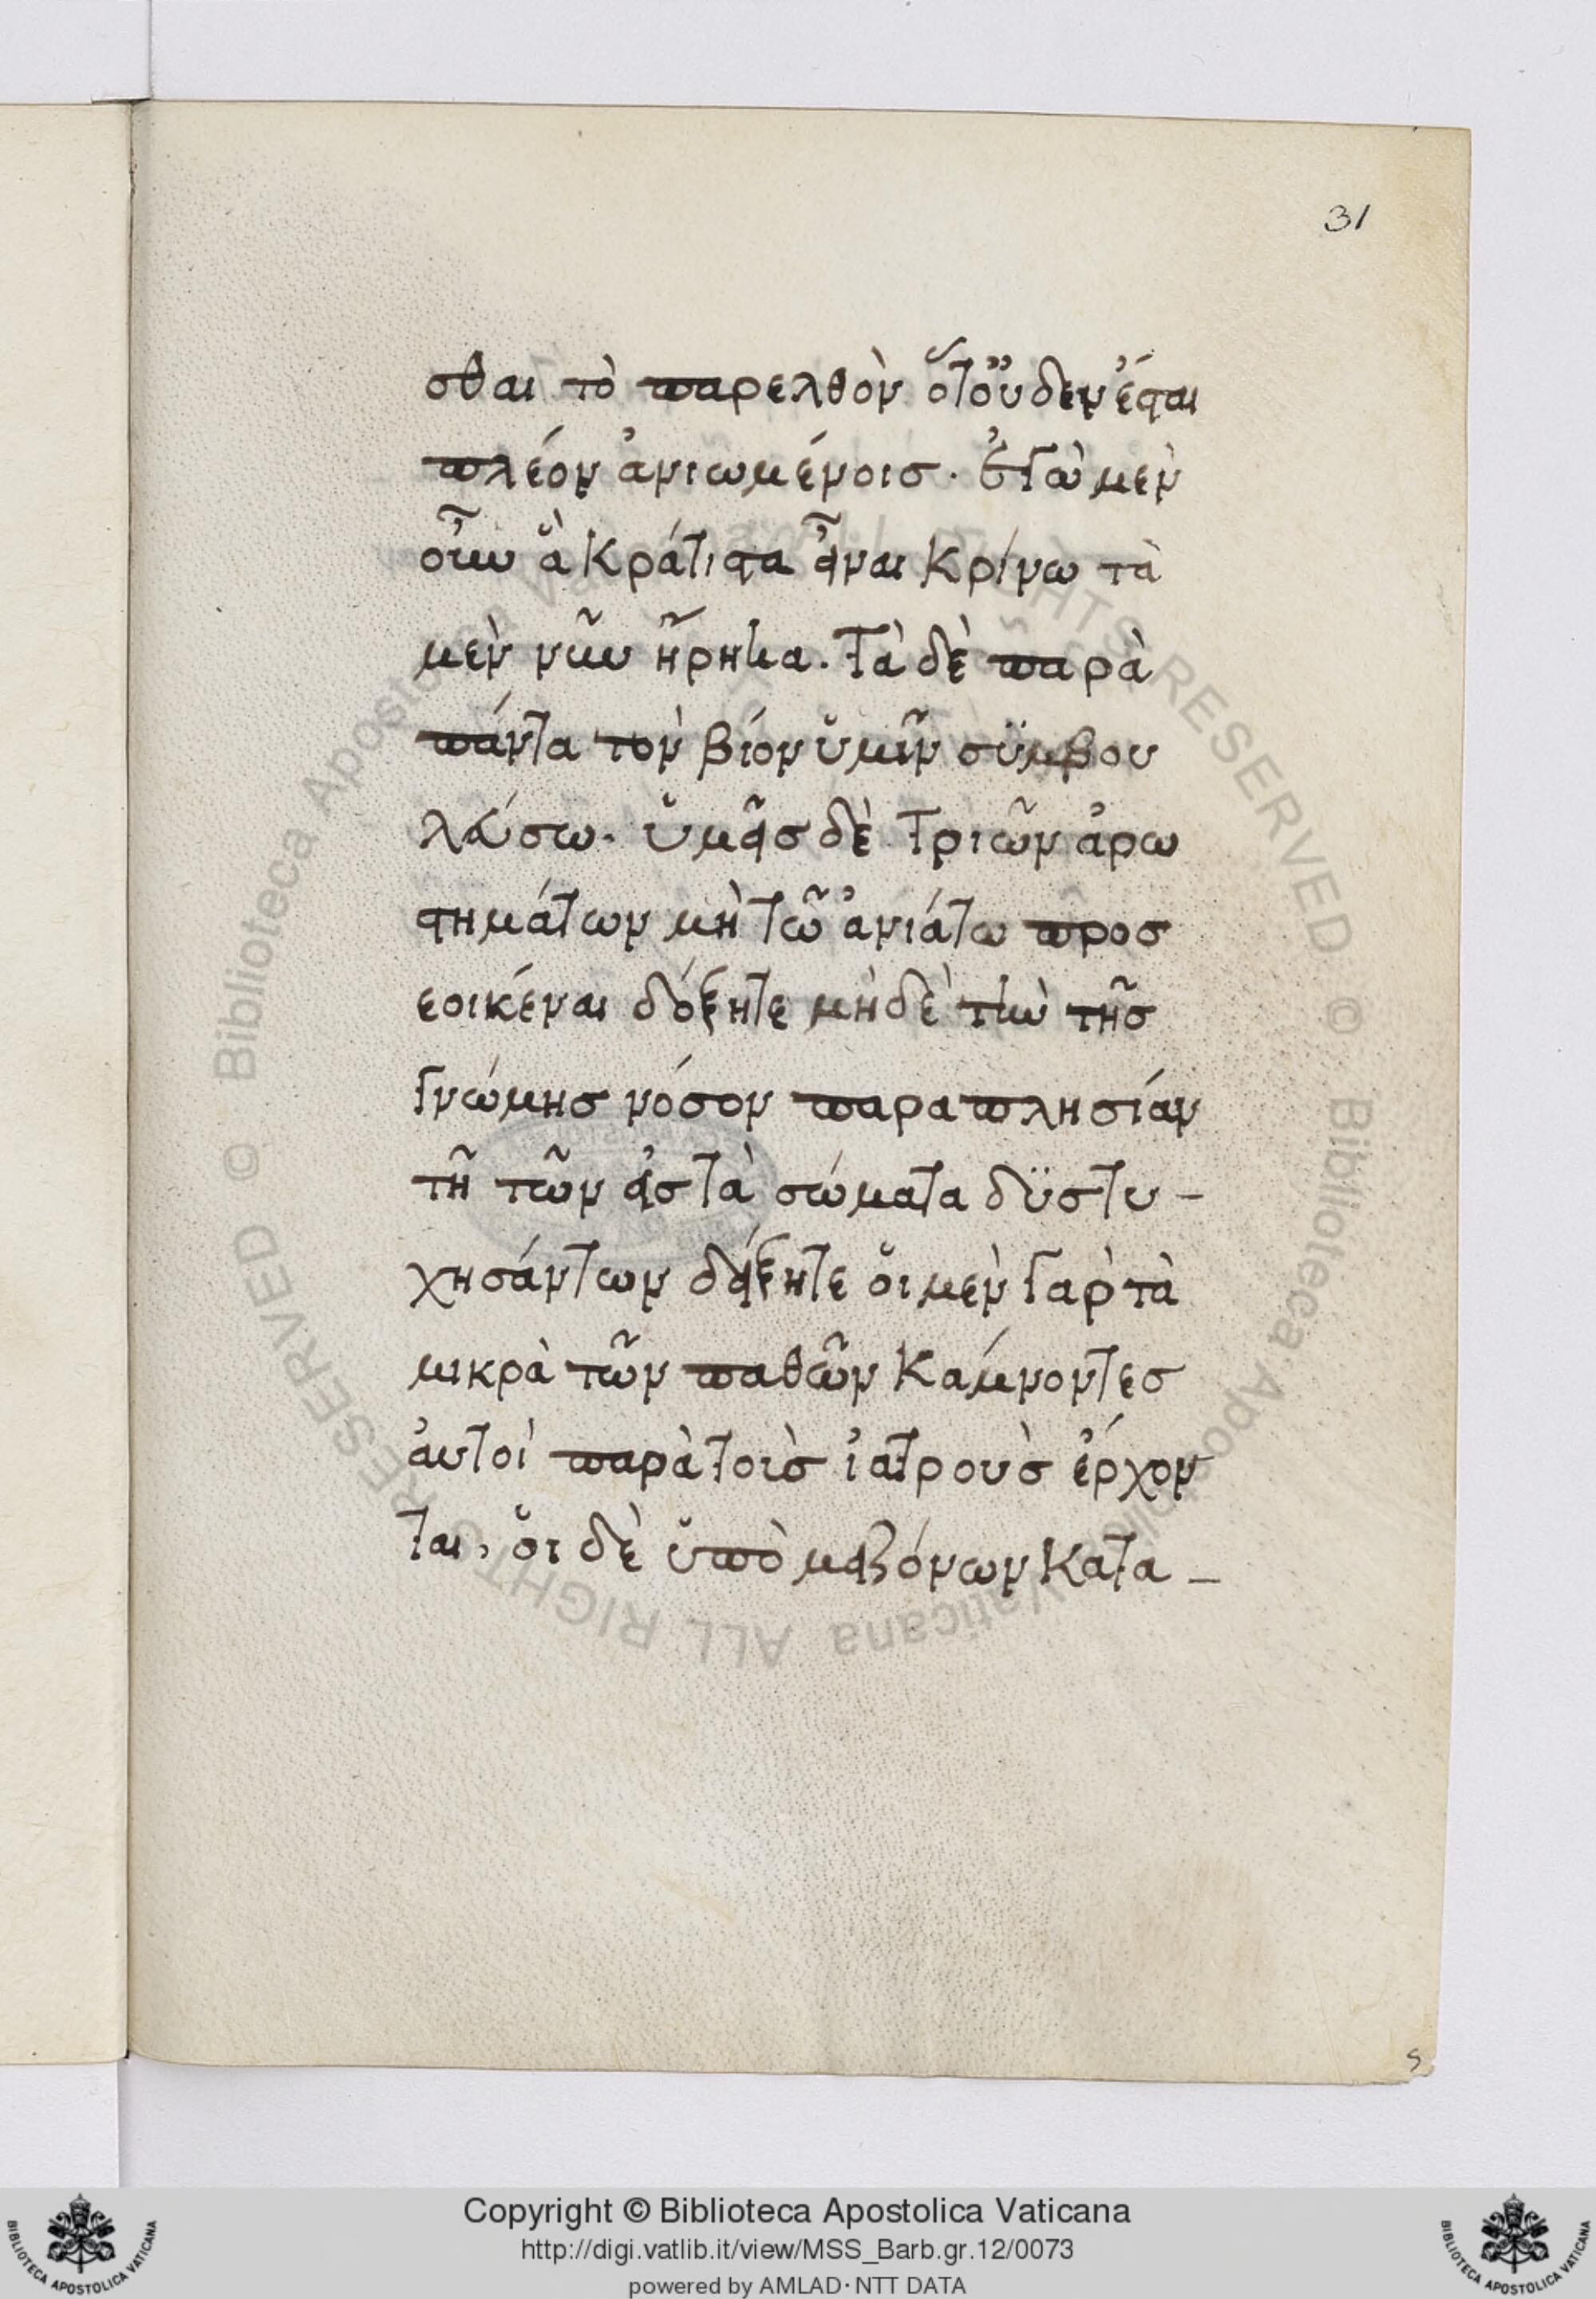 31
σθαι τὸ παρελθὸν ὅτ' οὐδὲν ἔσται
πλέον ἀνιωμένοισ. ἐγὼ μὲν
οὖν ἃ κράτιστα εἶναι κρίνω τὰ
μὲν νῦν ἥρηκα. τὰ δὲ παρὰ
πάντα τὸν βίον ὑμῖν συμβου
λεύσω. ὑμεῖσ δὲ τριῶν ἀρω
στημάτων μὴ τῶ ἀνιάτω προσ
εοικέναι δόξητε μὴδὲ τὴν τῆσ
γνώμησ νόσον παραπλησίαν
τῆ τῶν εἰσ τὰ σώματα δυστυ-
χησάντων δείξητε οἱ μὲν γὰρ τὰ
μικρὰ τῶν παθῶν κάμνοντεσ
αὐτοὶ παρὰ τοὺσ ἰατροὺσ ἔρχον
ται, οἱ δὲ ὑπὸ μειζόνων κατα-
ς
© Biblioteca Apostolica Vaticana ALL RIGHTS RESERVED © Biblioteca Apostolica Vaticana ALL RIGHTS RESERVED
Copyright © Biblioteca Apostolica Vaticana
http://digi.vatlib.it/view/MSS_Barb.gr.12/0073
powered by AMLAD·NTT DATA
BIBLIOTECA APOSTOLICA VATICANA
BIBLIOTECA APOSTOLICA VATICANA